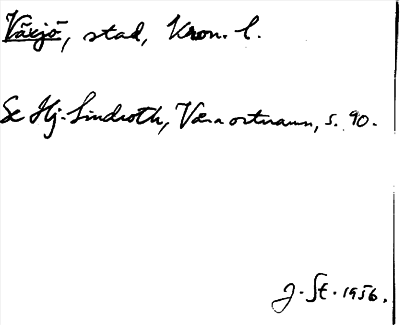 Växjö, stad, Kron. l.
Se Hj. Lindroth, Våra ortnamn, s. 90.
J. St. 1956.